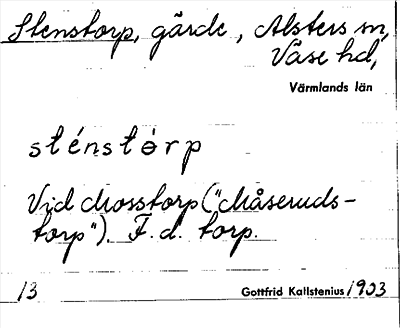 Stenstorp, gärde, Alsters sn,
Väse hd,
Värmlands län
sténstòrp
Vid Mosstorp ("Måseruds-
torp"). F.d. torp.
13 Gottfrid Kallstenius 1903